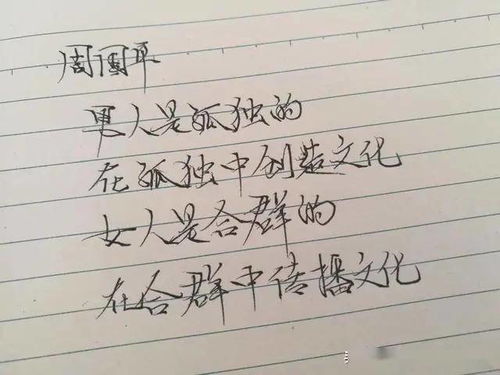 周国平
男人是孤独的
在孤独中创造文化
女人是合群的
在合群中传播文化